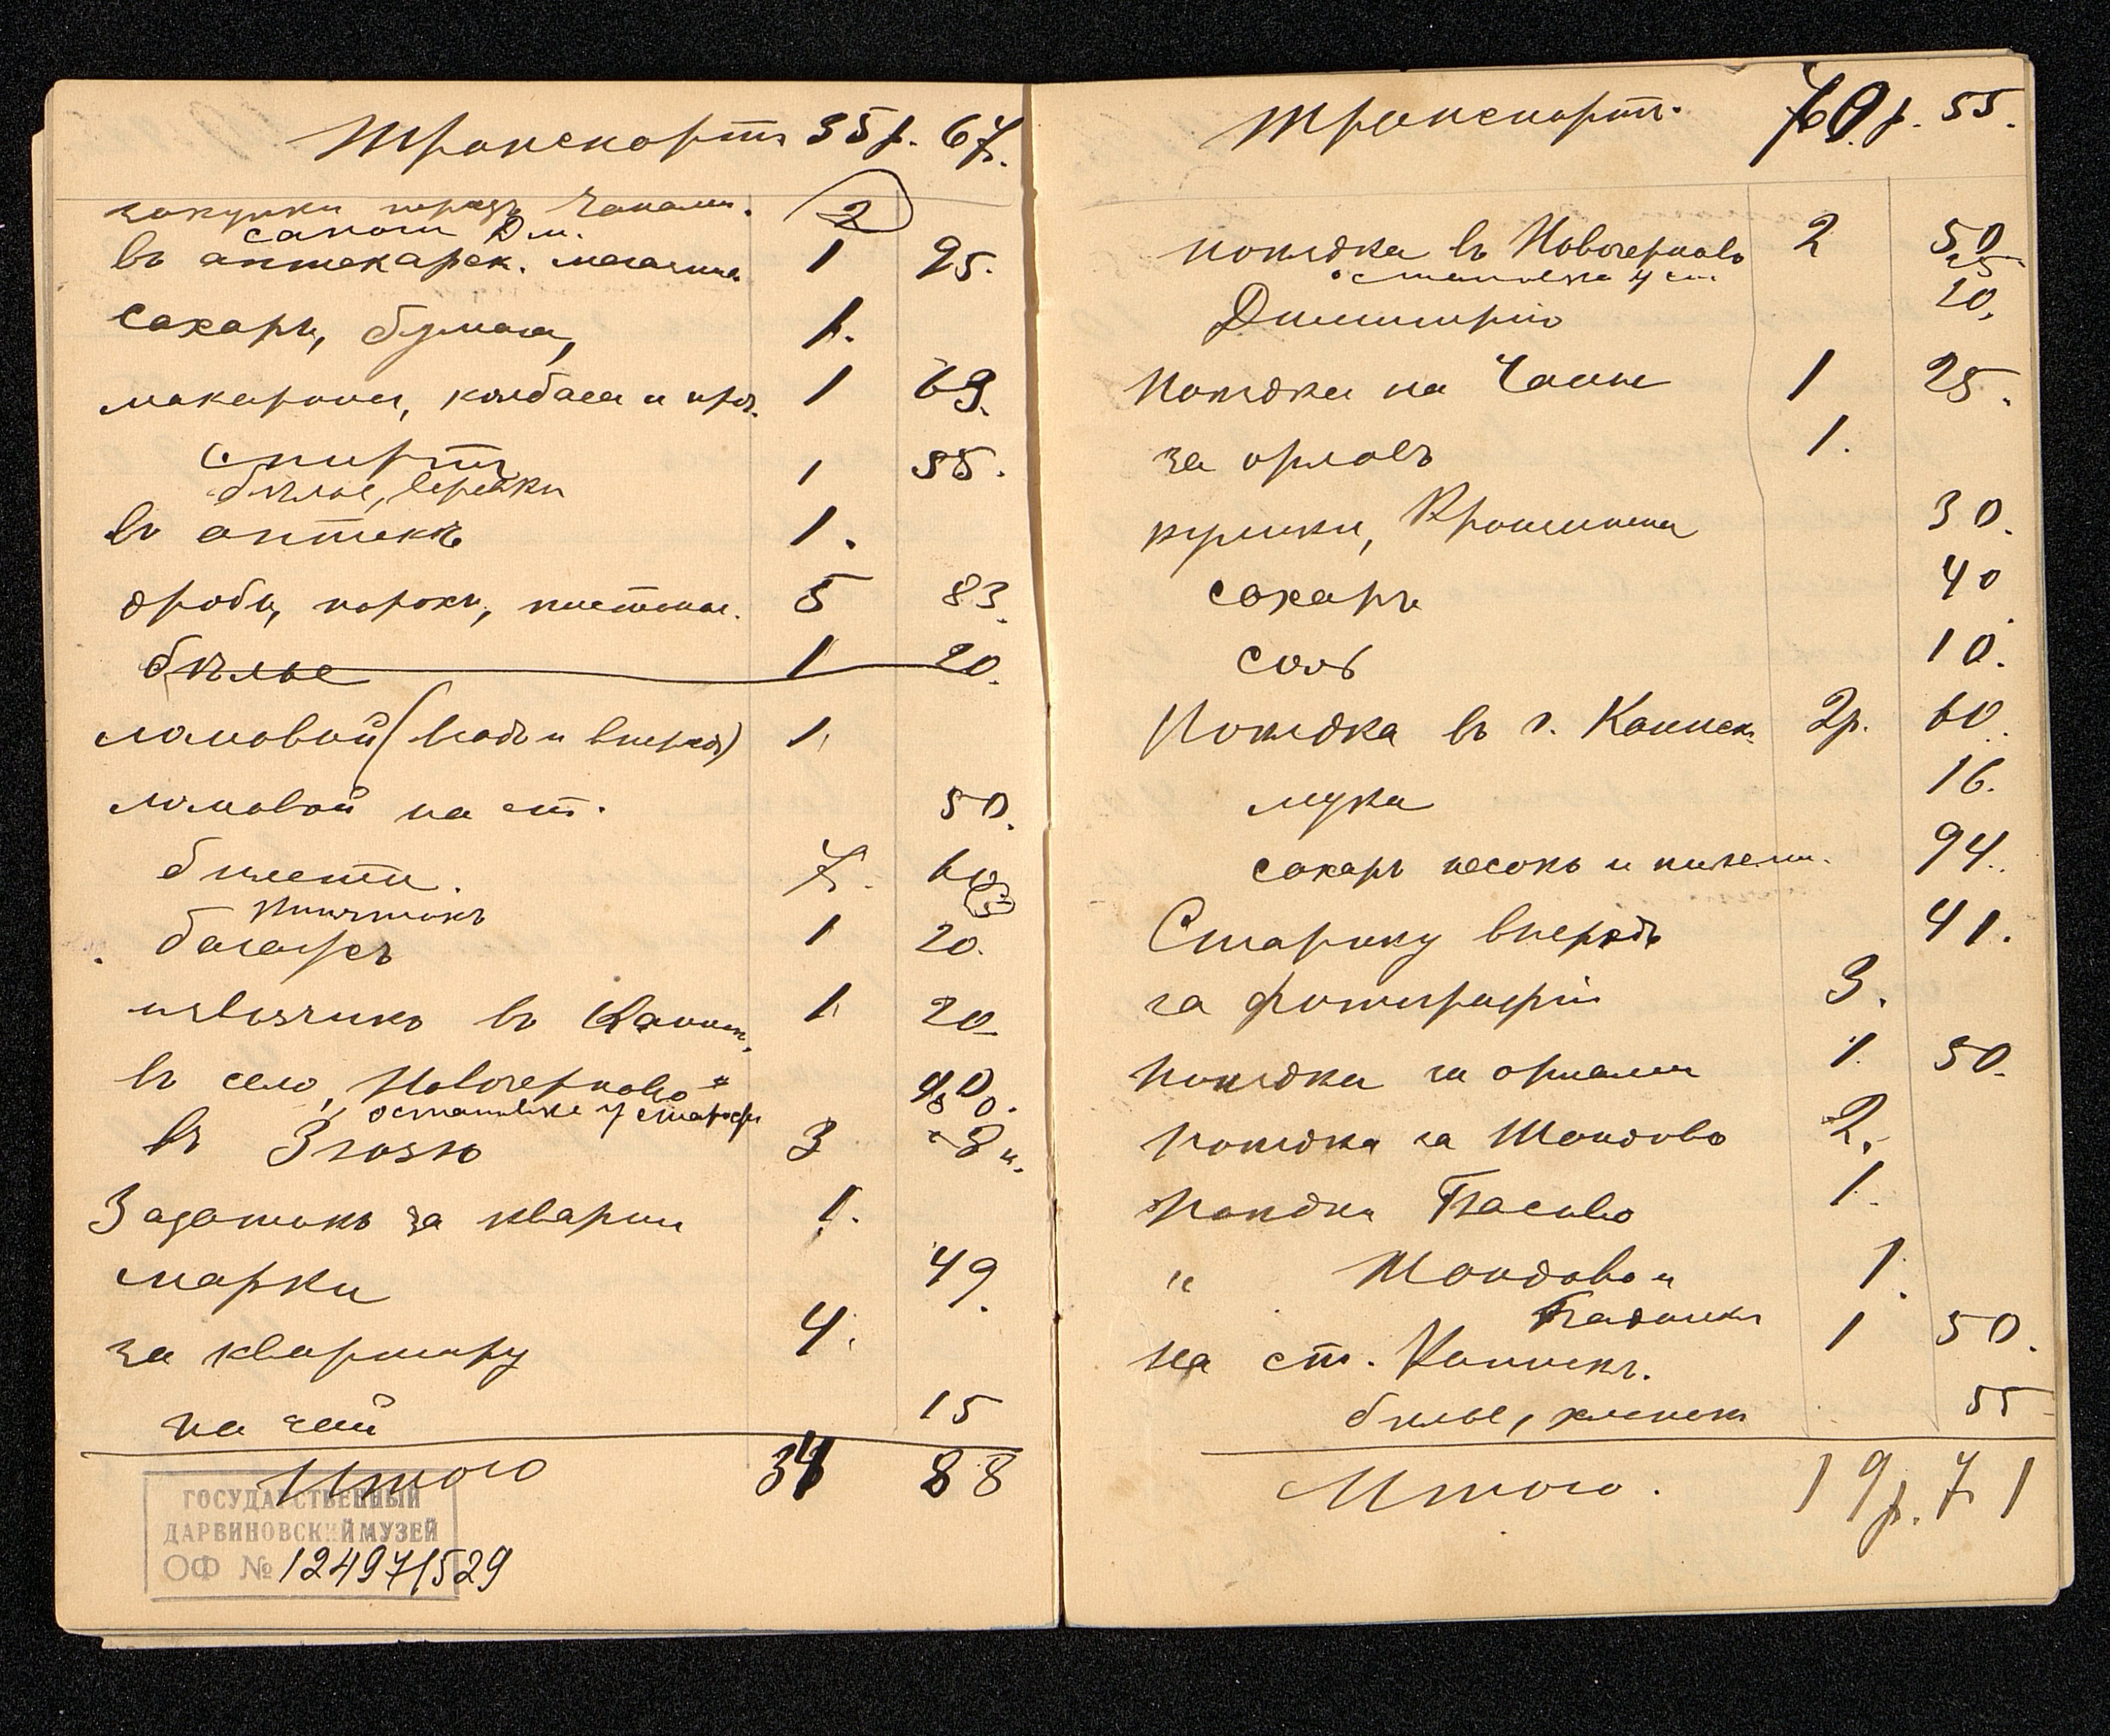 Транспортъ 35 р. 67.
закупки передъ Чанами. 2
сапоги Дм.
въ аптекарск. магазинѣ 1 25.
Сахаръ, бумага, 1.
макароны, колбаса и проч. 1 69.
Спиртъ 1 55.
бѣлье, веревки
въ аптекѣ 1.
дробь, порохъ, пистоны. 5 83.
бѣлье 1 20.
ломовой (назадъ и впередъ) 1.
ломовой на ст. 50.
билеты. 7. 60
Кипятокъ
багажъ 1 20.
извозчикъ въ Каинск. 1 20
въ село „Новогерново“ 40
остановка у старосты
въ 3 8 к.
Задатокъ за кварт 1.
марки 49.
за квартиру 4.
на чай 15
Итого 34 88
ГОСУДАРСТВЕННЫЙ
ДАРВИНОВСКИЙ МУЗЕЙ
ОФ № 12497/529
Транспортъ. 70 р. 55.
поѣздка въ Новогерново 2 50
остановка у ст 25
Димитрію 20.
Поѣздка на Чаны 1 25.
за орловъ 1.
кулики, 30.
сахаръ 40
соль 10.
Поѣздка въ г. Каинскъ 2р. 60.
мука 16.
сахаръ песокъ и 94.
Старику впередъ 41.
за фотографіи 3.
поѣздка за орлами 1. 50.
поѣздка за 2.
поѣздка 1.
" 1.
на ст. Каинскъ. 1 50.
бѣлье, 55
Итого. 19 р. 71